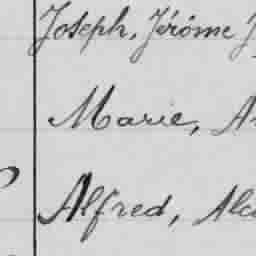 Joseph, Jérôme
Marie,
Alfred,